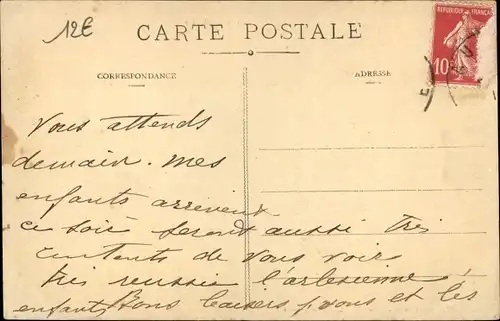 12E
CARTE POSTALE
CORRESPONDANCE
ADRESSE
REPUBLIQUE FRANÇAI
10
Vous attends
demain. Mes
enfants arrivent
ce soir seront aussi très
contents de vous voir
très reussie l'arlesienne
enfants Bons baisers p. vous et les